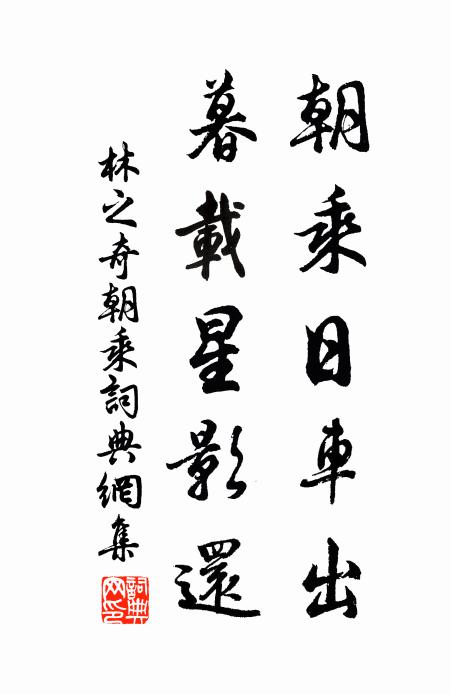 朝乘日車出
暮載星影還
林之奇朝乘詞典網集
詞典網印